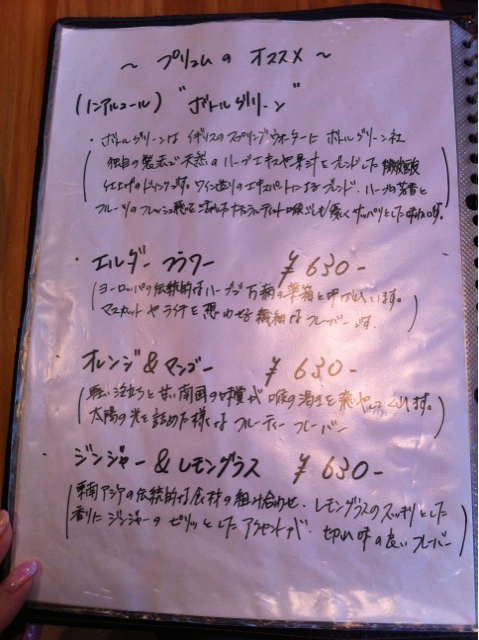 ～ プリュムの オススメ ～
(ノンアルコール) "ボトルグリーン"
・ボトルグリーンは イギリスの スプリングウォーターに ボトルグリーン社
独自の製法で天然のハーブエキスや果汁をブレンドした 微炭酸
仕上げのドリンクです。ワイン造りのエキスパートによるブレンド、ハーブの芳香と
フルーツのフレッシュ感を 喉ごしも優しく サッパリとした味わいです。
・エルダーフラワー ￥630-
(ヨーロッパの伝統的なハーブで 万能の薬箱と呼ばれています。
マスカットやライチを思わせる繊細なフレーバーです。)
・オレンジ＆マンゴー ￥630-
(軽い泡立ちと甘い南国の味覚が 喉の渇きを癒やしてくれます。
太陽の光を詰めた様な フルーティーフレーバー)
・ジンジャー＆レモングラス ￥630-
(東南アジアの伝統的な食材の組み合わせ、レモングラスのスッキリとした
香りに ジンジャーの ピリッとした アクセントが、切れ味の良い フレーバー)